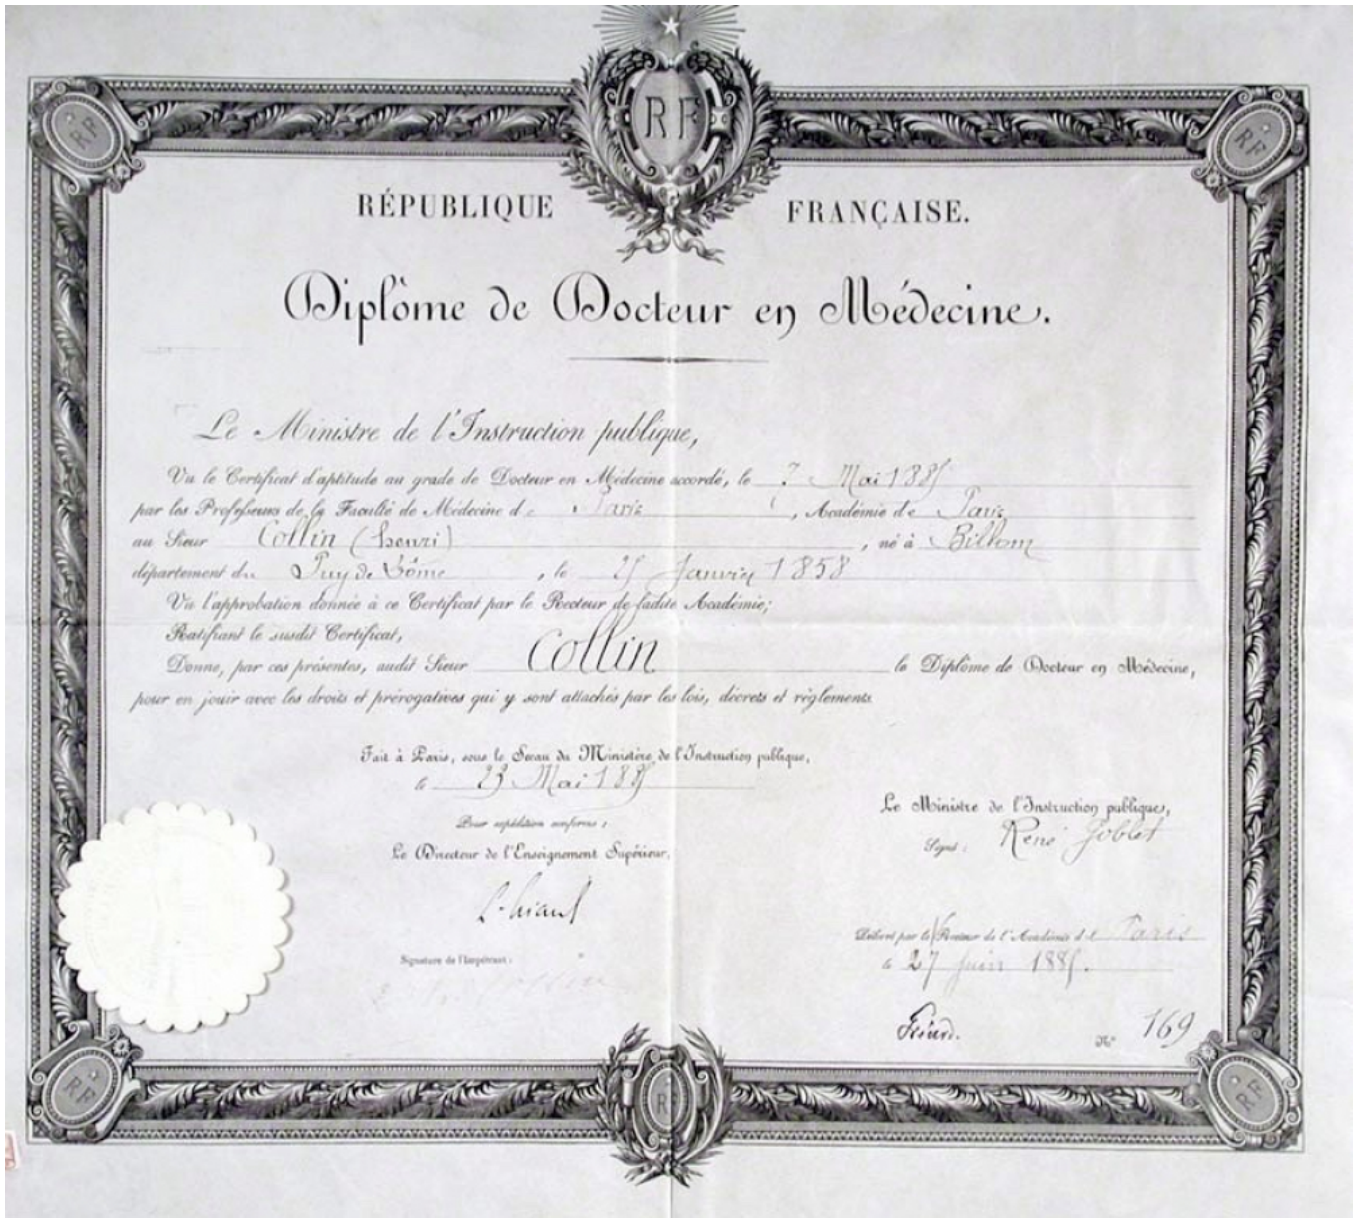 RF
RF
RF
RÉPUBLIQUE FRANÇAISE.
Diplôme de Docteur en Médecine.
Le Ministre de l'Instruction publique,
Vu le Certificat d'aptitude au grade de Docteur en Médecine accordé, le 7 Mai 1885
par les Professeurs de la Faculté de Médecine de Paris, Académie de Paris
au Sieur Collin (henri), né à Billom
département du Puy de Dôme, le Janvier 1858
Vu l'approbation donnée à ce Certificat par le Recteur de ladite Académie;
Ratifiant le susdit Certificat,
Donne, par ces présentes, audit Sieur Collin le Diplôme de Docteur en Médecine,
pour en jouir avec les droits et prérogatives qui y sont attachés par les lois, décrets et règlements.
Fait à Paris, sous le Sceau du Ministère de l'Instruction publique,
le 23 Mai 1885
Pour expédition conforme:
Le Directeur de l'Enseignement Supérieur,
Le Ministre de l'Instruction publique,
Signé: René Goblet
Signature de l'Impétrant:
Délivré par le Recteur de l'Académie de Paris
le 27 juin 1885.
N° 169
RF
RF
RF